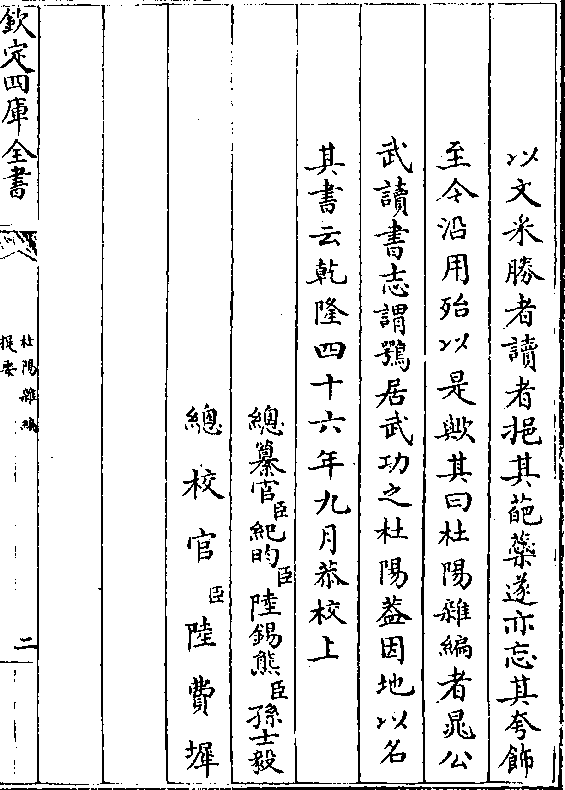 以文采勝者讀者挹其葩藻遂亦忘其夸飾
至今沿用殆以是歟其曰杜陽雜編者晁公
武讀書志謂鶚居武功之杜陽葢因地以名
其書云乾隆四十六年九月恭校上
總纂官臣紀昀臣陸錫熊臣孫士毅
總校官臣陸費墀
欽定四庫全書
杜陽雜編
提要
二